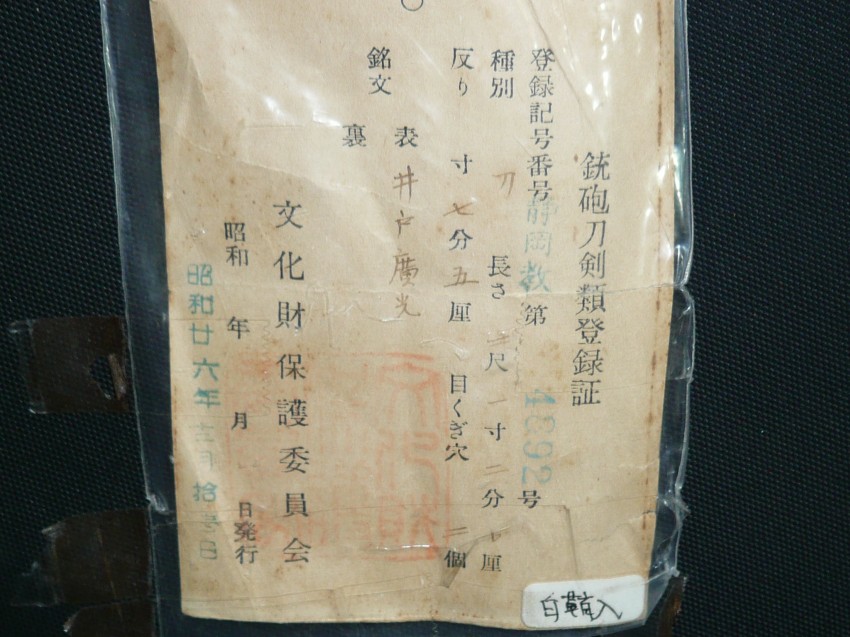 銃砲刀剣類登録証
登録記号番号 静岡教 第 4892 号
種別 刀 長さ 二尺一寸二分 厘
反り 寸七分五厘 目くぎ穴 二個
銘文 表 井戸廣光
裏
文化財保護委員会
昭和 年 月 日発行
昭和廿六年 月拾 日
白鞘入